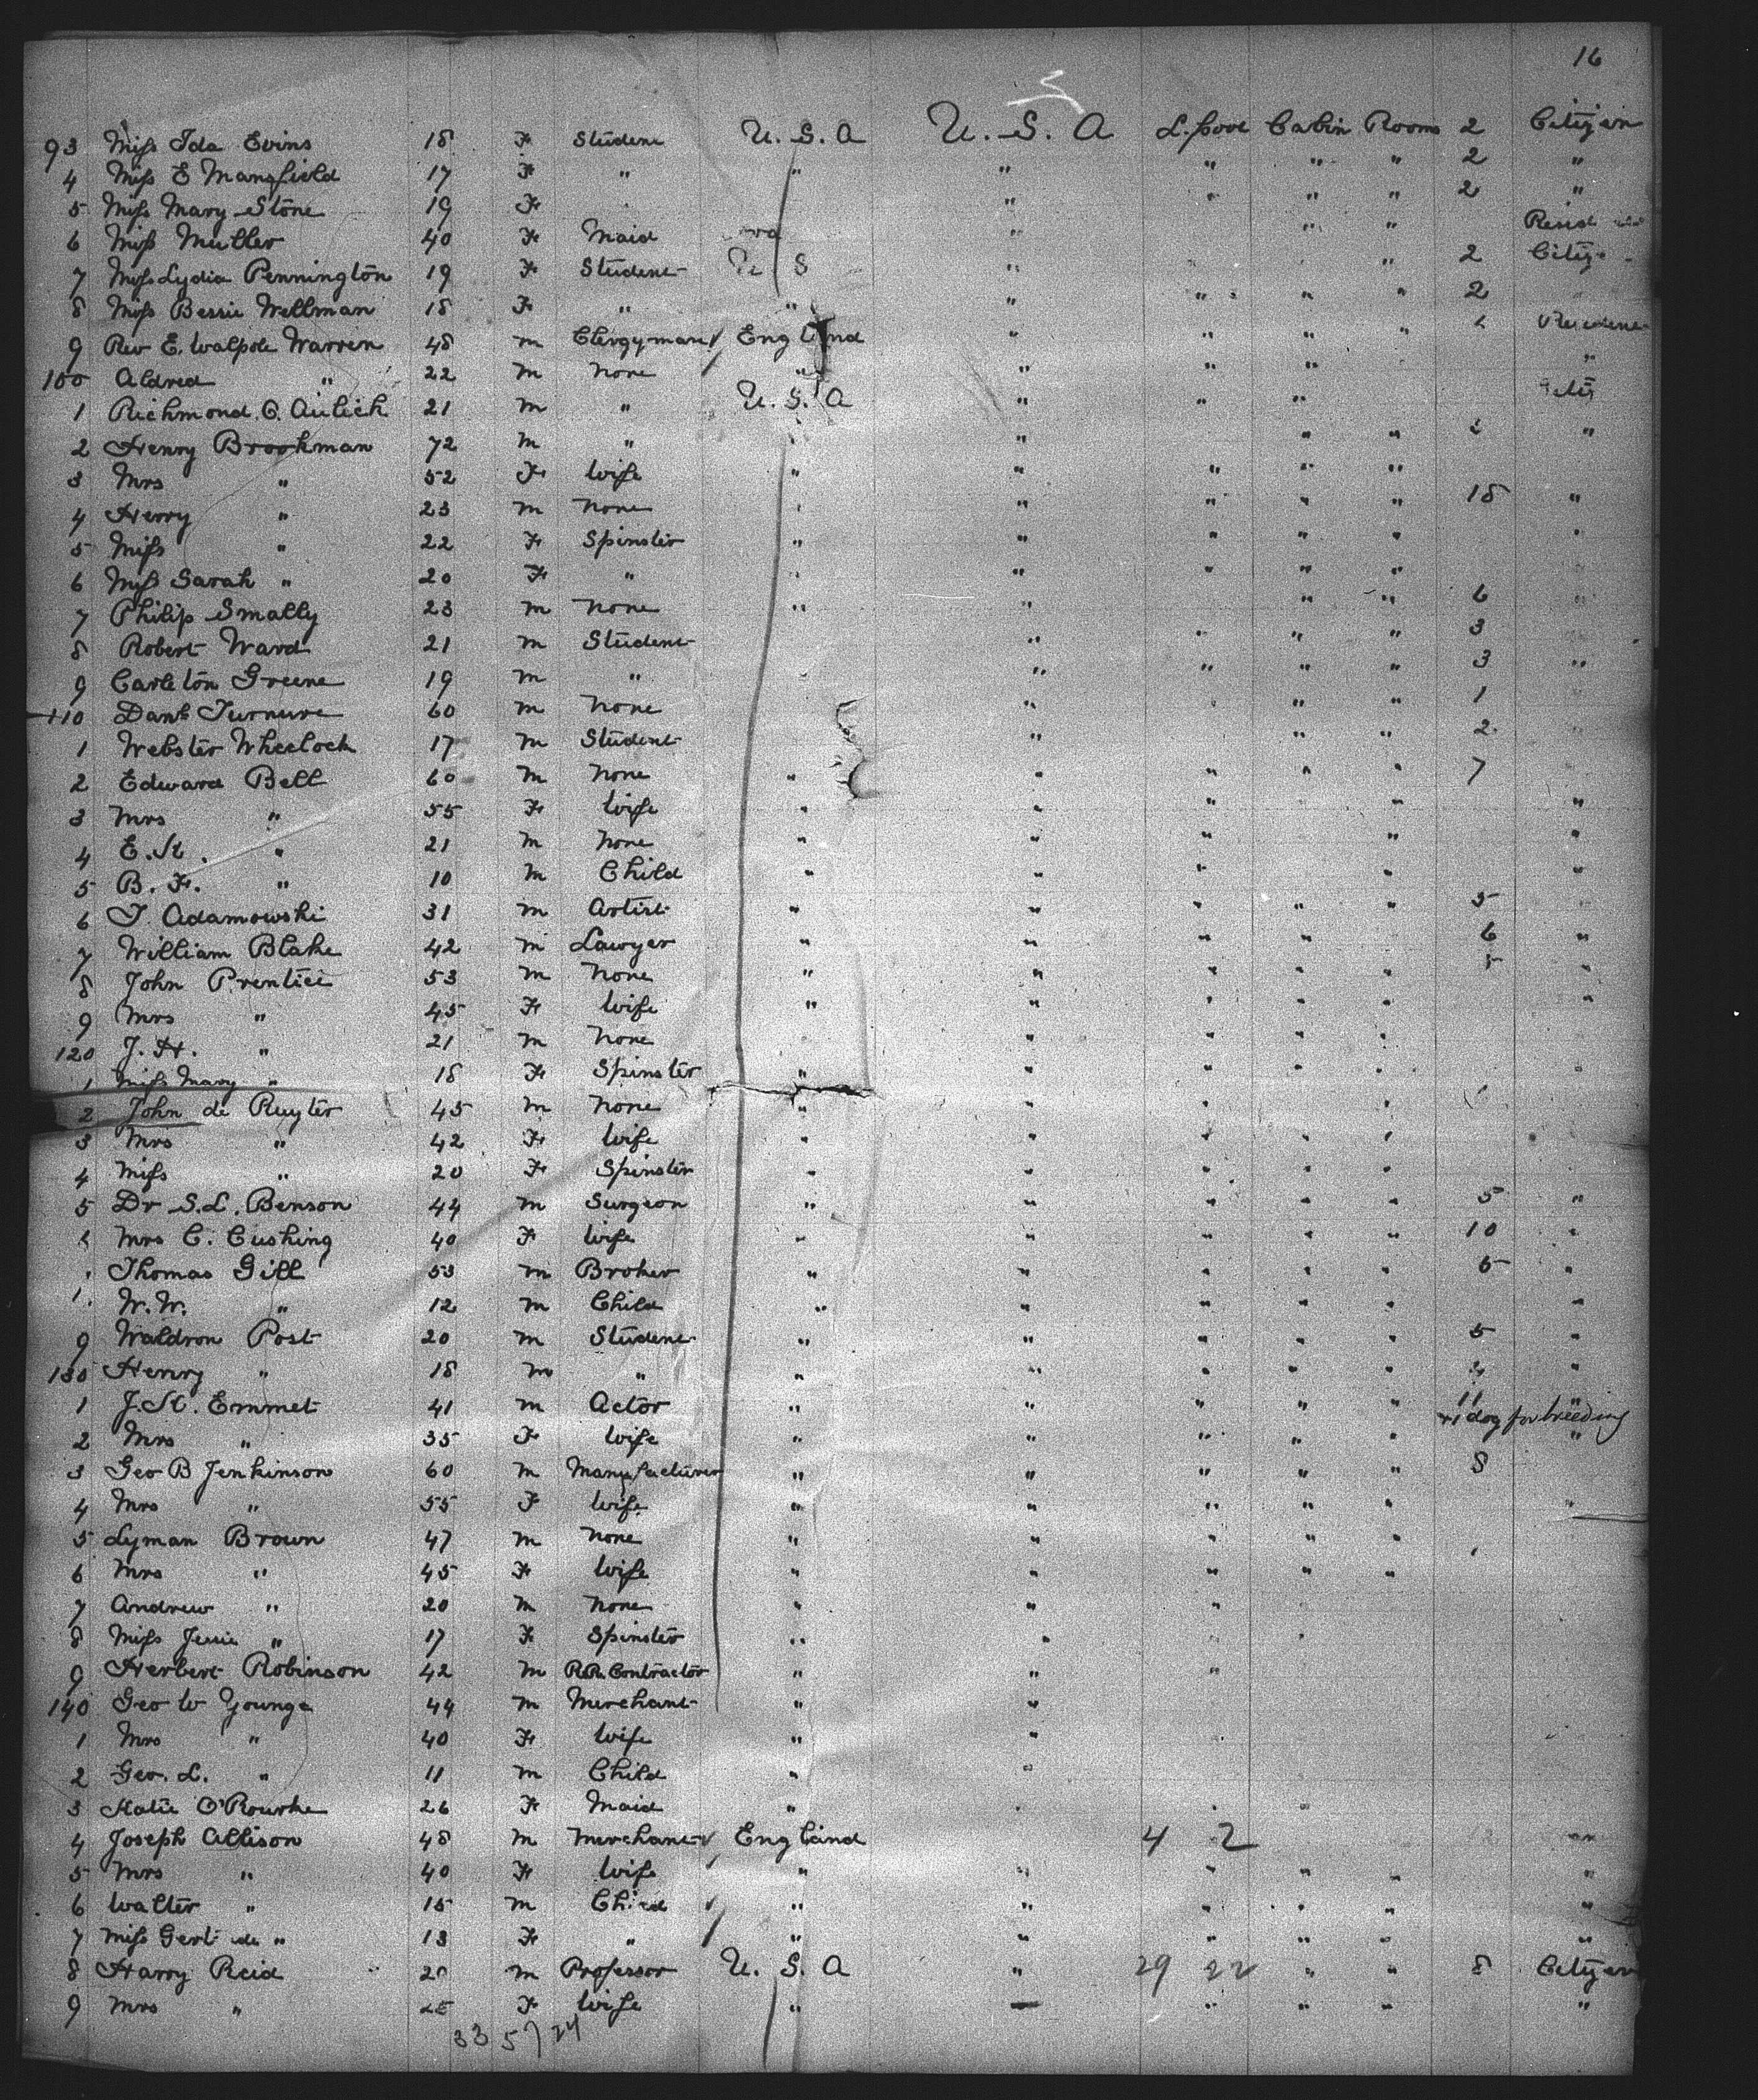 16
93 Miss Ida Evins 18 F Student U. S. A U. S. A L.pool Cabin Rooms 2 Citizen
4 Miss E Mansfield 17 F " " " " " " 2 "
5 Miss Mary Stone 19 F " " " " 2 "
6 Miss Muller 40 F Maid " " "
7 Miss Lydia Pennington 19 F Student U S " " 2
8 Miss Bessie Wellman 18 F " " " " " " 2
9 Rev E. Walpole Warren 48 m Clergyman England " " " "
100 Aldred " 22 m None " " " " "
1 Richmond 21 m " U. S. A " " "
2 Henry Brookman 72 m " " " " "
3 Mrs " 52 F Wife " " " " "
4 Harry " 23 m None " " " " 18 "
5 Miss " 22 F Spinster " " " " " "
6 Miss Sarah " 20 F " " " " " "
7 Philip Smally 23 m None " " " " 6 "
8 Robert Ward 21 m Student " " " " 3
9 Carleton Greene 19 m " " " " " 3 "
110 Danl Turnure 60 m None " " " 1
1 Webster Wheelock 17 m Student " " " 2
2 Edward Bell 60 m None " " " " " 7
3 Mrs " 55 F Wife " " " " "
4 E. K. " 21 m None " " " " "
5 B. F. " 10 m Child " " " " "
6 T. Adamowski 31 m Artist " " " " " 5
7 William Blake 42 m Lawyer " " " " " 6 "
8 John Prentice 53 m None " " " " " "
9 Mrs " 45 F Wife " " " " " "
120 J. H. " 21 m None " " " "
1 Miss Mary " 18 F Spinster " " " " "
2 John de Ruyter 45 m None " " " "
3 Mrs " 42 F Wife " " " "
4 Miss " 20 F Spinster " " " " "
5 Dr S. L. Benson 44 m Surgeon " " " " " 5 "
Mrs C. Cushing 40 F Wife " " " " " 10 "
Thomas Gill 53 m Broker " " " " " "
W. W. " 12 m Child " " " " " "
9 Waldron Post 20 m Student " " " " " 5 "
130 Henry " 18 m " " " " " " "
1 J. K. Emmet 41 m Actor " " " " " 11 "
+1 dog for breeding
2 Mrs " 35 F Wife " " " " " "
3 Geo B Jenkinson 60 m Manufacturer " " " " " 8
4 Mrs " 55 F Wife " " " " " "
5 Lyman Brown 47 m None " " " " "
6 Mrs " 45 F Wife " " " " "
7 Andrew " 20 m None " " "
8 Miss Jessie " 17 F Spinster " "
9 Herbert Robinson 42 m R.R. Contractor " " "
140 Geo W Younge 44 m Merchant " "
1 Mrs " 40 F Wife " "
2 Geo. L. " 11 m Child " "
3 Katie O'Rourke 26 F Maid "
4 Joseph Allison 48 m Merchant England 4 2
5 Mrs " 40 F Wife " " " " " "
6 Walter " 15 m Child " " " " " "
7 Miss " 13 F " " " " " " "
8 Harry Reid m Professor U. S. A " 29 22 " " 8 Citizen
9 Mrs " F Wife " " " " "